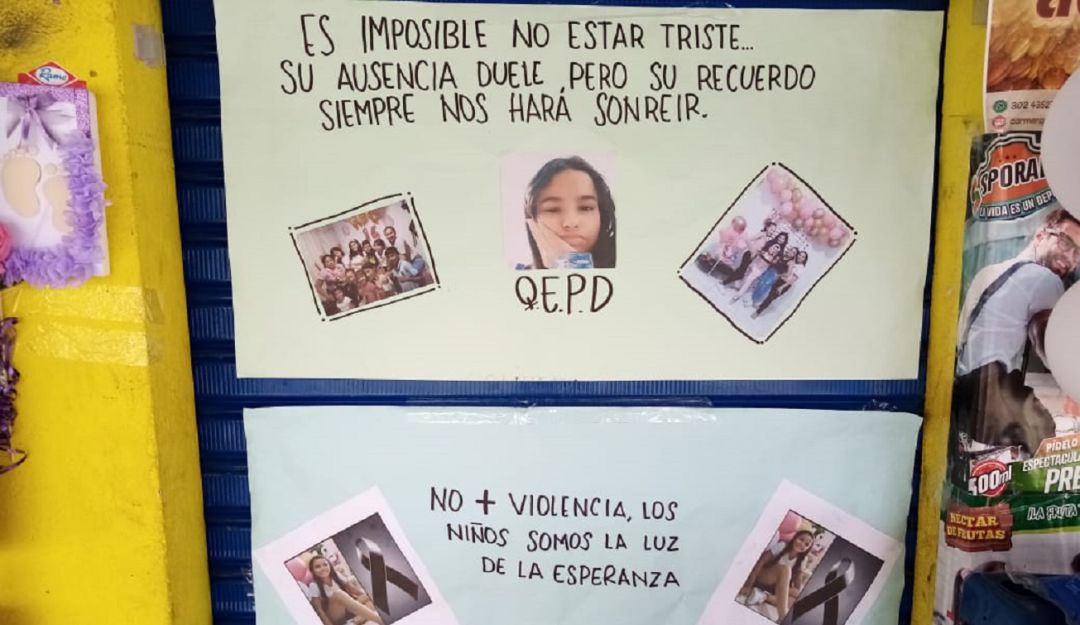 ES IMPOSIBLE NO ESTAR TRISTE...
SU AUSENCIA DUELE, PERO SU RECUERDO
SIEMPRE NOS HARÁ SONREIR.
Q.E.P.D
NO + VIOLENCIA, LOS
NIÑOS SOMOS LA LUZ
DE LA ESPERANZA
Rame
302 4352
SPORA
LA VIDA ES UN DEP
500ml
PÍDELO
ESPECTACUL
PRE
NECTAR
DE FRUTAS
¡LA FRUTA